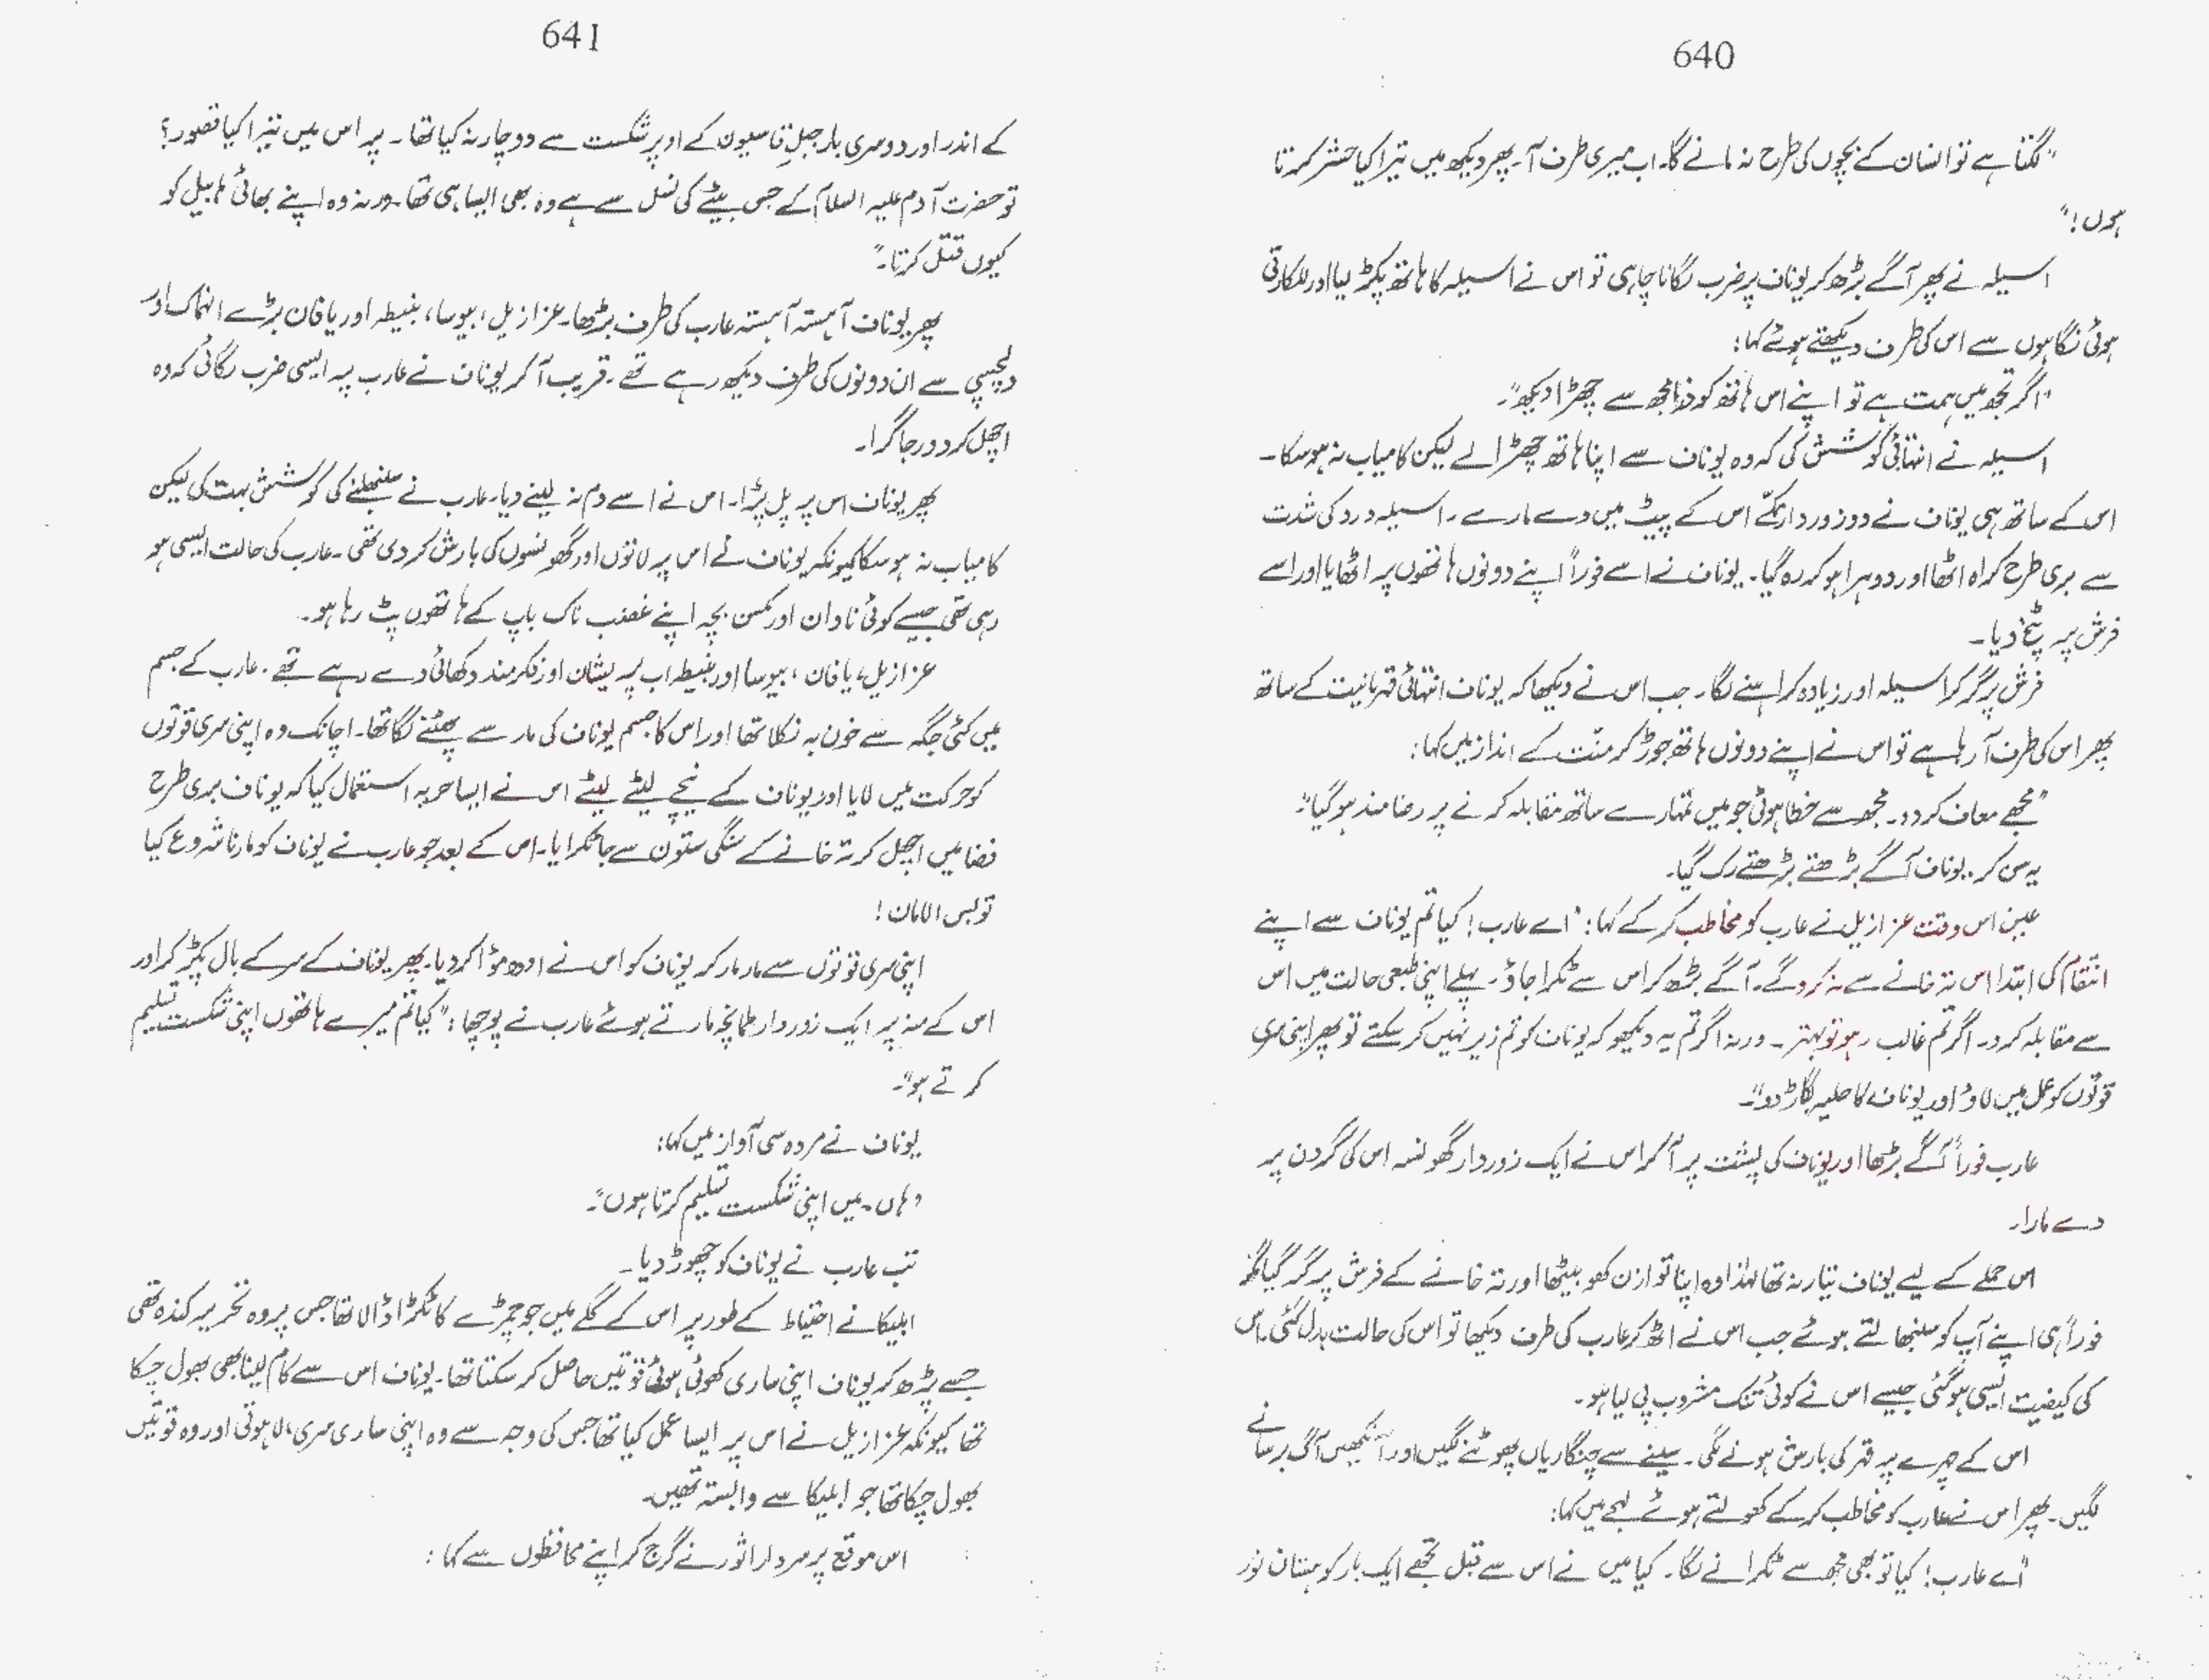 640
"لگتا ہے تو انسان کے بچوں کی طرح نہ مانے گا۔ اب میری طرف آ۔ پھر دیکھ میں تیرا کیا حشر کرتا
ہوں!"
اسیلہ نے پھر آگے بڑھ کر یوناف پر ضرب لگانا چاہی تو اس نے اسیلہ کا ہاتھ پکڑ لیا اور للکارتی
ہوئی نگاہوں سے اس کی طرف دیکھتے ہوئے کہا:
"اگر تجھ میں ہمت ہے تو اپنے اس ہاتھ کو ذرا مجھ سے چھڑا دیکھ"۔
اسیلہ نے انتہائی کوشش کی کہ وہ یوناف سے اپنا ہاتھ چھڑا لے لیکن کامیاب نہ ہو سکا۔
اس کے ساتھ ہی یوناف نے دو زور دار مکّے اس کے پیٹ میں دے مارے۔ اسیلہ درد کی شدت
سے بری طرح کراہ اٹھا اور دوہرا ہو کر رہ گیا۔ یوناف نے اسے فوراً اپنے دونوں ہاتھوں پر اٹھایا اور اسے
فرش پر پٹخ دیا۔
فرش پر گر کر اسیلہ اور زیادہ کراہنے لگا۔ جب اس نے دیکھا کہ یوناف انتہائی قہرمانیت کے ساتھ
پھر اس کی طرف آ رہا ہے تو اس نے اپنے دونوں ہاتھ جوڑ کر منّت کے انداز میں کہا:
"مجھے معاف کر دو۔ مجھ سے خطا ہوئی جو میں تمہارے ساتھ مقابلہ کرنے پر رضامند ہو گیا"۔
یہ سن کر یوناف آگے بڑھتے بڑھتے رک گیا۔
عین اس وقت عزازیل نے عارب کو مخاطب کر کے کہا: "اے عارب! کیا تم یوناف سے اپنے
انتقام کی ابتدا اس تہ خانے سے نہ کرو گے۔ آگے بڑھ کر اس سے ٹکرا جاؤ۔ پہلے اپنی طبعی حالت میں اس
سے مقابلہ کرو۔ اگر تم غالب رہو تو بہتر۔ ورنہ اگر تم یہ دیکھو کہ یوناف کو تم زیر نہیں کر سکتے تو پھر اپنی سری
قوتوں کو عمل میں لاؤ اور یوناف کا حلیہ بگاڑ دو"۔
عارب فوراً آگے بڑھا اور یوناف کی پشت پر آ کر اس نے ایک زور دار گھونسہ اس کی گردن پر
دے مارا۔
اس حملے کے لیے یوناف تیار نہ تھا لہٰذا وہ اپنا توازن کھو بیٹھا اور تہ خانے کے فرش پر گر گیا مگر
فوراً ہی اپنے آپ کو سنبھالتے ہوئے جب اس نے اٹھ کر عارب کی طرف دیکھا تو اس کی حالت بدل گئی۔ اس
کی کیفیت ایسی ہو گئی جیسے اس نے کوئی مشروب پی لیا ہو۔
اس کے چہرے پر قہر کی بارش ہونے لگی۔ سینے سے چنگاریاں پھوٹنے لگیں اور آنکھیں آگ برسانے
لگیں۔ پھر اس نے عارب کو مخاطب کر کے کھولتے ہوئے لہجے میں کہا:
"اے عارب! کیا تو بھی مجھ سے ٹکرانے لگا۔ کیا میں نے اس سے قبل تجھے ایک بار کوہستان نور
641
کے اندر اور دوسری بار جبلِ قاسیون کے اوپر شکست سے دوچار نہ کیا تھا۔ پر اس میں تیرا کیا قصور؟
تو حضرت آدم علیہ السلام کے جس بیٹے کی نسل سے ہے وہ بھی ایسا ہی تھا۔ ورنہ وہ اپنے بھائی ہابیل کو
کیوں قتل کرتا۔"
پھر یوناف آہستہ آہستہ عارب کی طرف بڑھا۔ عزازیل، بیوسا، بنیطہ اور یافان بڑے انہماک اور
دلچسپی سے ان دونوں کی طرف دیکھ رہے تھے۔ قریب آ کر یوناف نے عارب پر ایسی ضرب لگائی کہ وہ
اچھل کر دور جا گرا۔
پھر یوناف اس پر پل پڑا۔ اس نے اسے دم نہ لینے دیا۔ عارب نے سنبھلنے کی کوشش بہت کی لیکن
کامیاب نہ ہو سکا کیونکہ یوناف نے اس پر لاتوں اور گھونسوں کی بارش کر دی تھی۔ عارب کی حالت ایسی ہو
رہی تھی جیسے کوئی نادان اور کمسن بچہ اپنے غضب ناک باپ کے ہاتھوں پٹ رہا ہو۔
عزازیل، یافان، بیوسا اور بنیطہ اب پریشان اور فکرمند دکھائی دے رہے تھے۔ عارب کے جسم
میں کئی جگہ سے خون بہ نکلا تھا اور اس کا جسم یوناف کی مار سے پھٹنے لگا تھا۔ اچانک وہ اپنی سری قوتوں
کو حرکت میں لایا اور یوناف کے نیچے لیٹے لیٹے اس نے ایسا حربہ استعمال کیا کہ یوناف بری طرح
فضا میں اچھل کر تہ خانے کے سنگی ستون سے جا ٹکرایا۔ اس کے بعد جو عارب نے یوناف کو مارنا شروع کیا
تو بس الامان!
اپنی سری قوتوں سے مار مار کر یوناف کو اس نے ادھ موا کر دیا۔ پھر یوناف کے سر کے بال پکڑ کر اور
اس کے منہ پر ایک زور دار طمانچہ مارتے ہوئے عارب نے پوچھا: "کیا تم میرے ہاتھوں اپنی شکست تسلیم
کرتے ہو"۔
یوناف نے مردہ سی آواز میں کہا:
"ہاں۔ میں اپنی شکست تسلیم کرتا ہوں"۔
تب عارب نے یوناف کو چھوڑ دیا۔
ابلیکا نے احتیاط کے طور پر اس کے گلے میں جو چمڑے کا ٹکڑا ڈالا تھا جس پر وہ تحریر کندہ تھی
جسے پڑھ کر یوناف اپنی ساری کھوئی ہوئی قوتیں حاصل کر سکتا تھا۔ یوناف اس سے کام لینا بھی بھول چکا
تھا کیونکہ عزازیل نے اس پر ایسا عمل کیا تھا جس کی وجہ سے وہ اپنی ساری سری، لاہوتی اور وہ قوتیں
بھول چکا تھا جو ابلیکا سے وابستہ تھیں۔
اس موقع پر سردار اثور نے گرج کر اپنے محافظوں سے کہا: